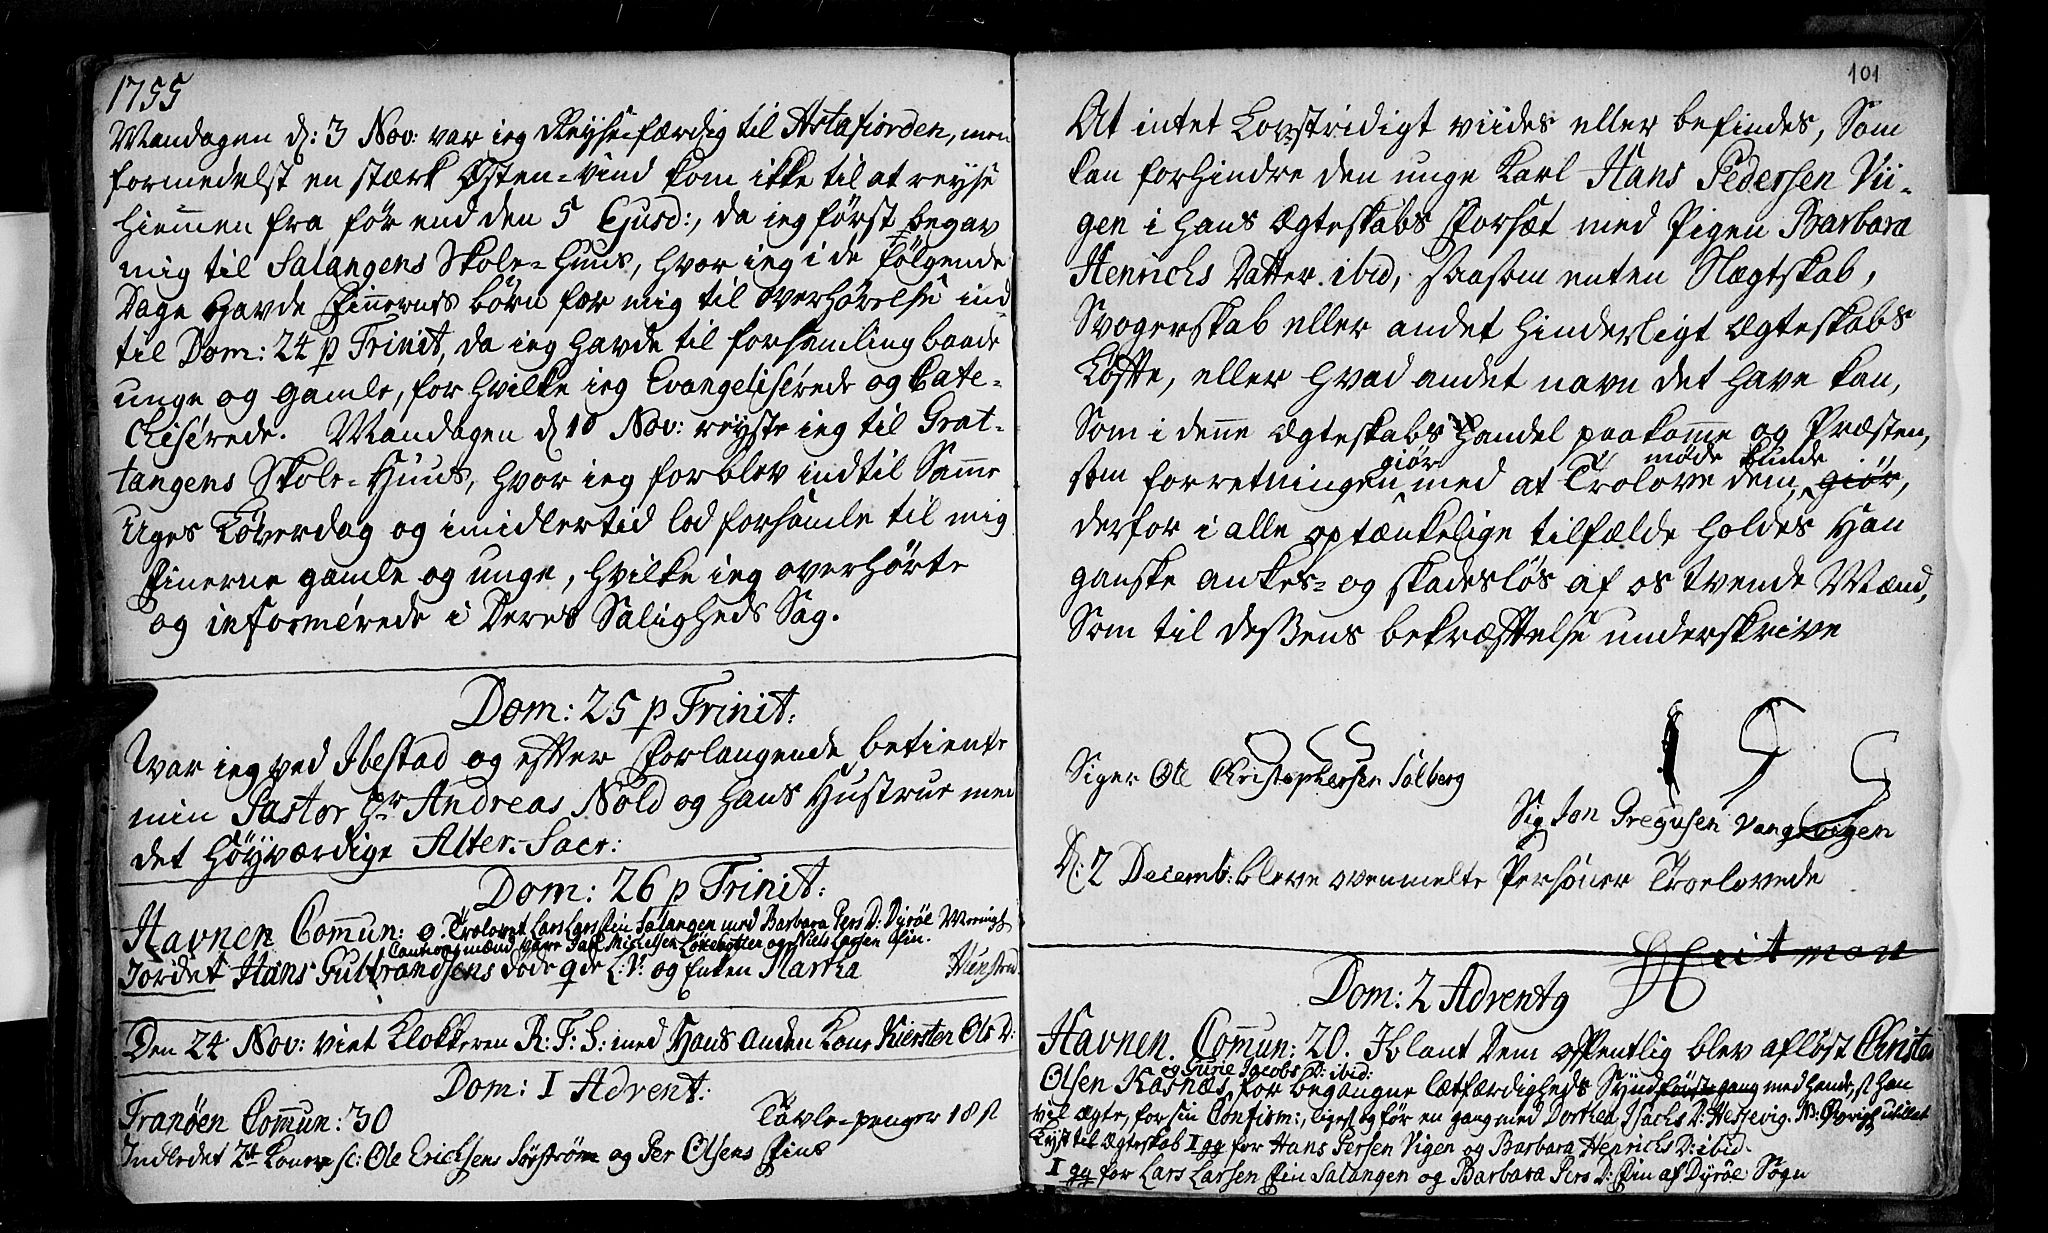 1755
Mandagen d: 3 Nov: var ieg Reysefærdig til Astafiorden, men
formedelst en stærk Østen-vind kom ikke til at reyse
hiem̄en fra før end den 5 Ejusd:, da ieg først begav
mig til Salangens Skole-Huus, hvor ieg i de følgende
Dage havde Fin̄ernes børn for mig til overhørelse ind-
til Dom: 24 p Trinit, da ieg havde til forsamling baade
unge og gamle, for hvilke ieg Evangeliserede og Cate-
chiserede. Mandagen d 10 Nov: reyste ieg til Grat-
tangens Skole-Huus, hvor ieg forblev indtil Samme
Uges Løverdag og imidlertid lod forsamle til mig
Finerne gamle og unge, hvilke ieg overhørte
og informerede i Deres Saligheds Sag.
Dom: 25 p Trinit:
Var ieg ved Ibestad og efter Forlangende betiente
min Pastor Hr Andreas Nold og hans Hustrue med
det høyværdige Alter-Sacr:
Dom: 26 p Trinit:
Havnen Com̄un: 9. Trolovet Lars Larssen Salangen med Barbara Pers D: Dyrøe
Cautions mænd vare Michelsen og Niels Larsen Fin.
Jordet Hans Gulbrandsens døde og Enken Martha
Den 24 Nov: viet Klokkeren R: F: S: med Hans anden Kone Kiersten Ols D:
Dom: 1 Advent:
Tranøen Com̄un: 30 Tavle-penger 18 s
Indledet 2de Koner sc: Ole Erichsens Sørstrøm og Per Olsens Fins
101
At intet Lovstridigt viides eller befindes, Som
kan forhindre den unge Karl Hans Pedersen Vii-
gen i hans Ægteskabs Forsæt med Pigen Barbara
Henrichs Datter ibid, saasom enten Slægtskab,
Svogerskab eller andet hinderligt Ægteskabs
Løfte, eller hvad andet navn det have kan,
Som i den̄e Ægteskabs Handel paakom̄e og Præsten,
giør møde kunde
som forretningen med at Trolove dem, giør,
derfor i alle optænkelige tilfælde holdes Han
ganske ankes- og skadesløs af os tvende Mænd,
Som til deßens bekræftelse underskrive
Siger Ole Christophersen Solberg
Sig Jon Gregusen Vangsvigen
D: 2 Decemb: bleve ovenmelte Personer Troelovede
Heitman
Dom: 2 Advent9
Havnen. Com̄un: 20. Iblant Dem offentlig blev afløst Christen
og Gurie Jacobs D: ibid:
Olsen Kasnæs, for begangne Letfærdigheds Synd første gang med hende, st han
vil ægte, for sin Confirm:, ligesaa før en gang med Dorthea Isachs D: Hessevig.
Lyst til Ægteskab 1 gg for Hans Persen Vigen og Barbara Henrichs D: ibid.
1 gg for Lars Larsen Fin Salangen og Barbara Pers D: Fin af Dyrøe Sogn